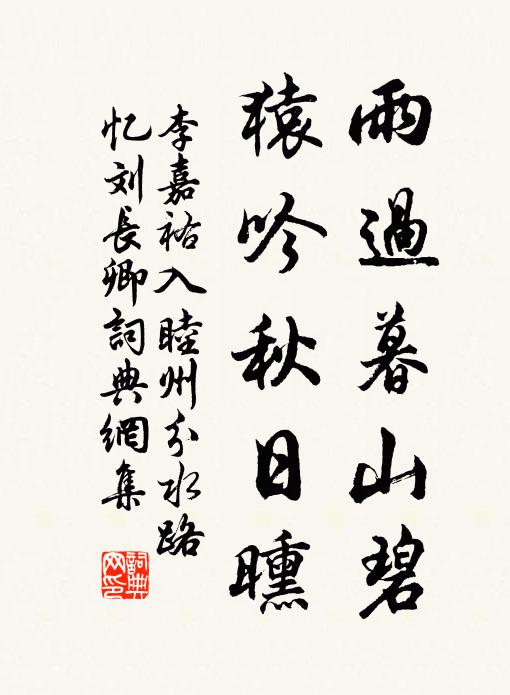 雨過暮山碧
猿吟秋日曛
李嘉祐入睦州分水路
忆刘長卿詞典網集
詞典网印